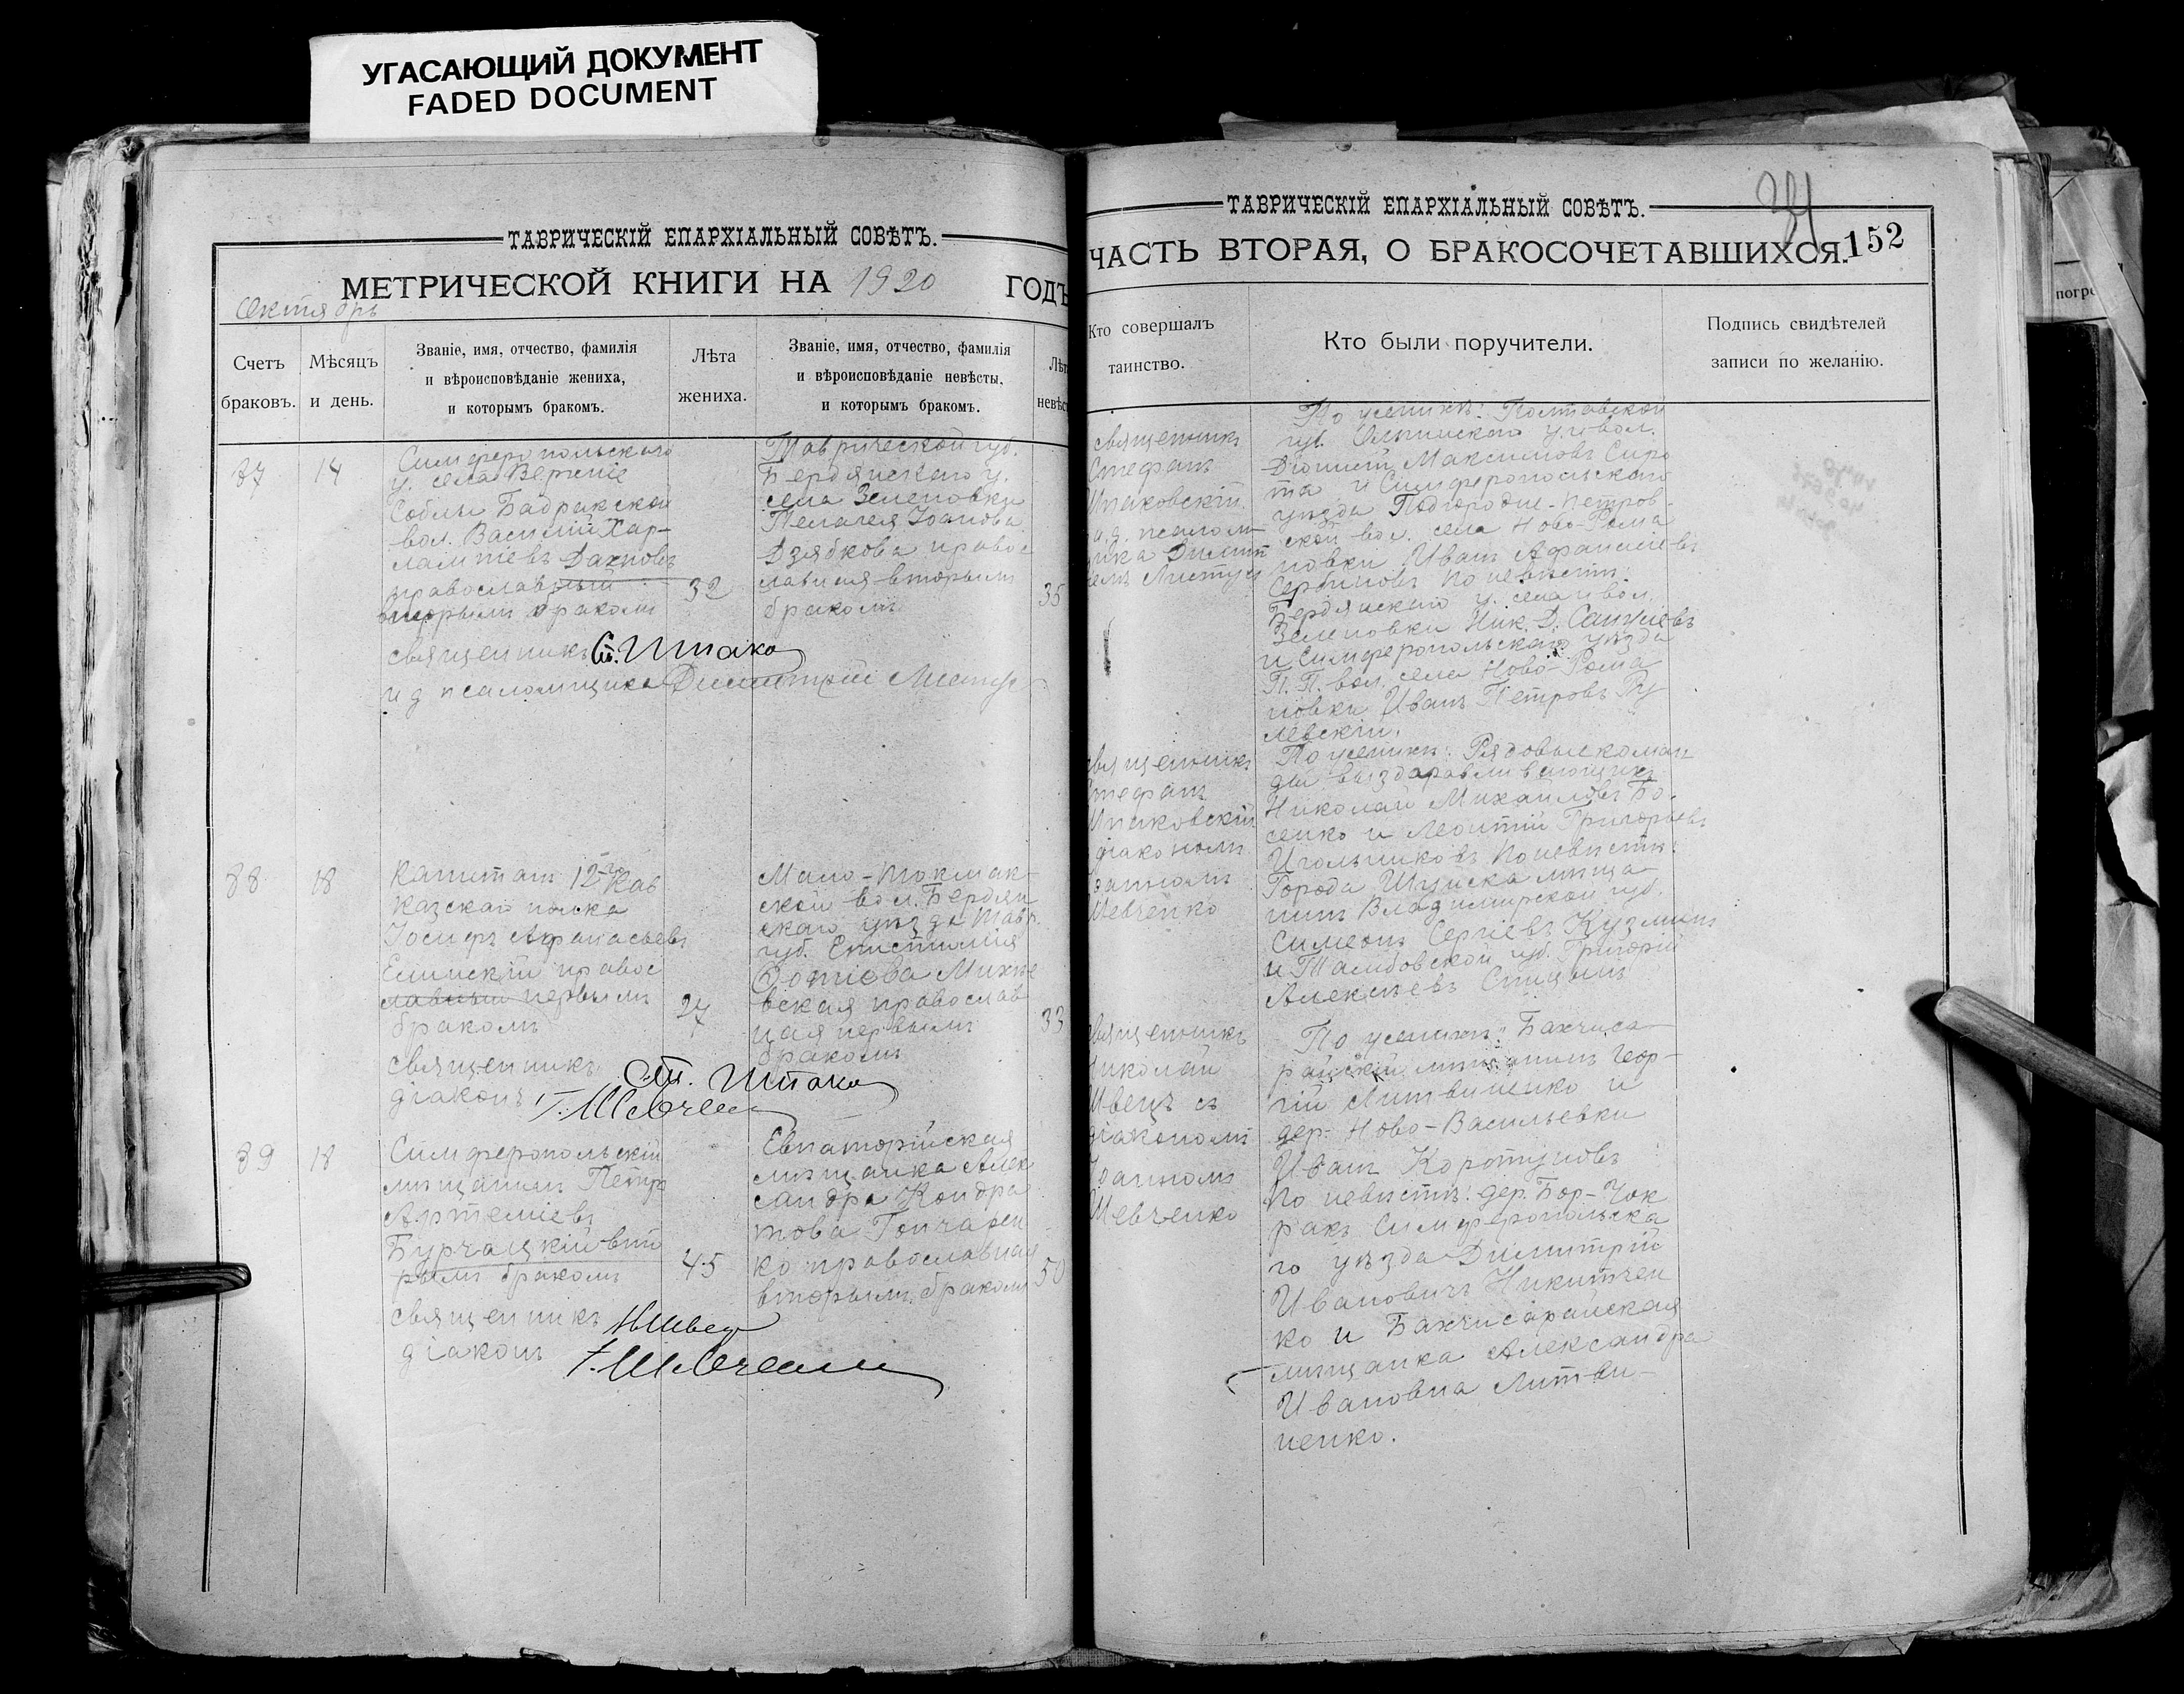 УГАСАЮЩИЙ ДОКУМЕНТ
FADED DOCUMENT
ТАВРИЧЕСКІЙ ЕПАРХІАЛЬНЫЙ СОВѢТЪ.
МЕТРИЧЕСКОЙ КНИГИ НА 1920 ГОДЪ
Октябрь
Счетъ
браковъ.
Мѣсяцъ
и день.
Званіе, имя, отчество, фамилія
и вѣроисповѣданіе жениха,
и которымъ бракомъ.
Лѣта
жениха.
Званіе, имя, отчество, фамилія
и вѣроисповѣданіе невѣсты,
и которымъ бракомъ.
Лѣт
невѣс
14
Симферопольскаго
у. села Верхніе
Саблы Бадракской
вол. Василий Хар-
лампіевъ Дахновъ
православный
вторымъ бракомъ
32
Таврической губ.
Бердянскаго у.
села Зеленовки
Пелагея Іоанова
Дзябкова правос
лавная вторымъ
бракомъ
35
священникъ Ст. Шпако
и д псаломщика Димитрій Листу
88
18
Капитанъ 12-го Кав
казскаго полка
Іосифъ Афанасьевъ
Елинскій правос
лавный первымъ
бракомъ
27
Мало-Токмак-
ской вол. Бердян
скаго уѣзда Тавр.
губ. Епистимія
Фотіева Михнѣ
вская православ
ная первымъ
бракомъ
33
священникъ Ст. Шпако
діаконъ І. Шевчен
89
18
Симферопольскій
мѣщанинъ Петръ
Артеміевъ
Бурчацкій вто
рымъ бракомъ
45
Евпаторійская
мѣщанка Алек
сандра Кондра
това Гончарен
ко православная
вторымъ бракомъ
50
священникъ Н Швец
діаконъ І. Шевченко
ТАВРИЧЕСКІЙ ЕПАРХІАЛЬНЫЙ СОВѢТЪ.
ЧАСТЬ ВТОРАЯ, О БРАКОСОЧЕТАВШИХСЯ.
152
Кто совершалъ
таинство.
Кто были поручители.
Подпись свидѣтелей
записи по желанію.
священникъ
Стефанъ
Шпаковскій
и.д. псалом
щика Димит
По женихѣ: Полтавской
губ. у. и вол.
Максимовъ Сиро
та и Симферопольскаго
уѣзда Подгородне-Петров-
ской вол. села Ново-Рома
новки Иванъ Афанасіевъ
Сербиновъ По невѣстѣ:
Бердянскаго у. села и вол.
Зеленовки Ник. Д.
и Симферопольскаго уѣзда
П. П. вол. села Ново-Рома
новки Иванъ Петровъ Ру
левскій.
священникъ
Стефанъ
Шпаковскій
діакономъ
Іоанномъ
Шевченко
По женихѣ: Рядовые коман
ды выздоравливающихъ
Николай Михайловъ Бо-
сенко и Леонтій Григорьевъ
Игольниковъ По невѣстѣ:
Города Шуйска мѣща
нинъ Владимирской губ.
Симеонъ Сергіевъ Кузминъ
и Тамбовской губ. Григорій
Алексѣевъ Спицынъ
священникъ
Николай
Швецъ съ
діакономъ
Іоанномъ
Шевченко
По женихѣ: Бахчиса
райскій мѣщанинъ Геор-
гій Литвиненко и
дер. Ново-Васильевки
Иванъ Коротуновъ
По невѣстѣ: дер. Бор-Чок
ракъ Симферопольска
го уѣзда Димитрій
Ивановичъ Никитчен
ко и Бахчисарайская
мѣщанка Александра
Ивановна Литви-
ненко.
погре